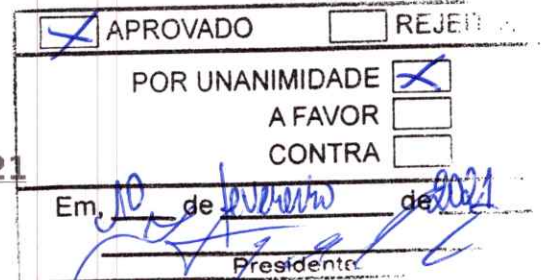 APROVADO REJEI
POR UNANIMIDADE
A FAVOR
CONTRA
21
Em, 10 de fevereiro de 2021
Presidente